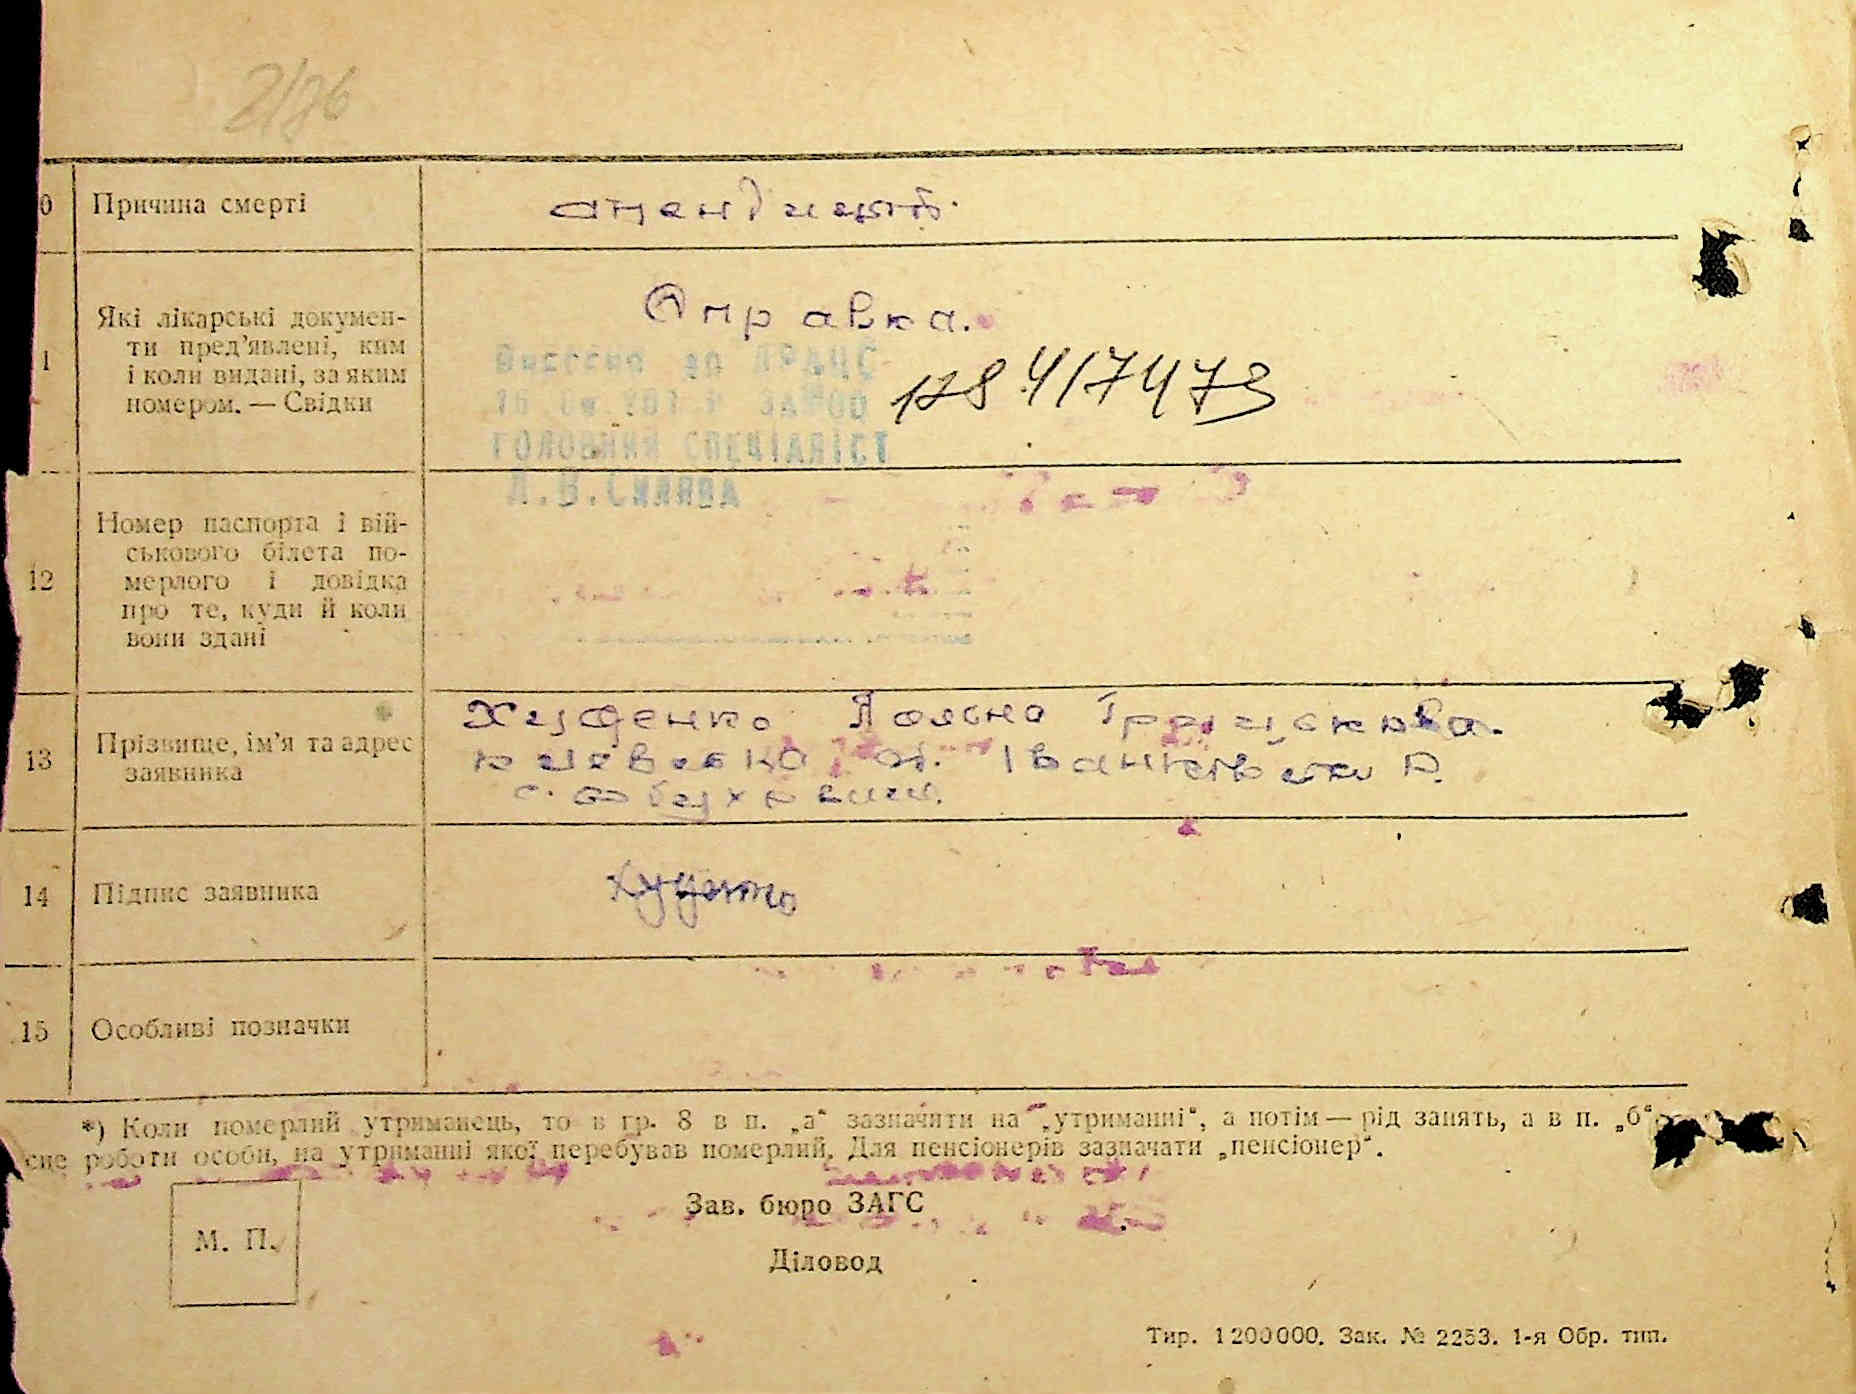 2/86
0 Причина смерті
апендицит.
1 Які лікарські документи пред’явлені, ким і коли видані, за яким номером. — Свідки
Справка.
Внесено до ДРАЦС
ГОЛОВНИЙ СПЕЦІАЛІСТ
12 Номер паспорта і військового білета померлого і довідка про те, куди й коли вони здані
13 Прізвище, ім’я та адрес заявника
с.
14 Підпис заявника
15 Особливі позначки
*) Коли померлий утриманець, то в гр. 8 в п. „а“ зазначити на „утриманні“, а потім — рід занять, а в п. „б“
сце роботи особи, на утриманні якої перебував померлий. Для пенсіонерів зазначати „пенсіонер“.
М. П.
Зав. бюро ЗАГС
Діловод
Тир. 1200000. Зак. № 2253. 1-я Обр. тип.